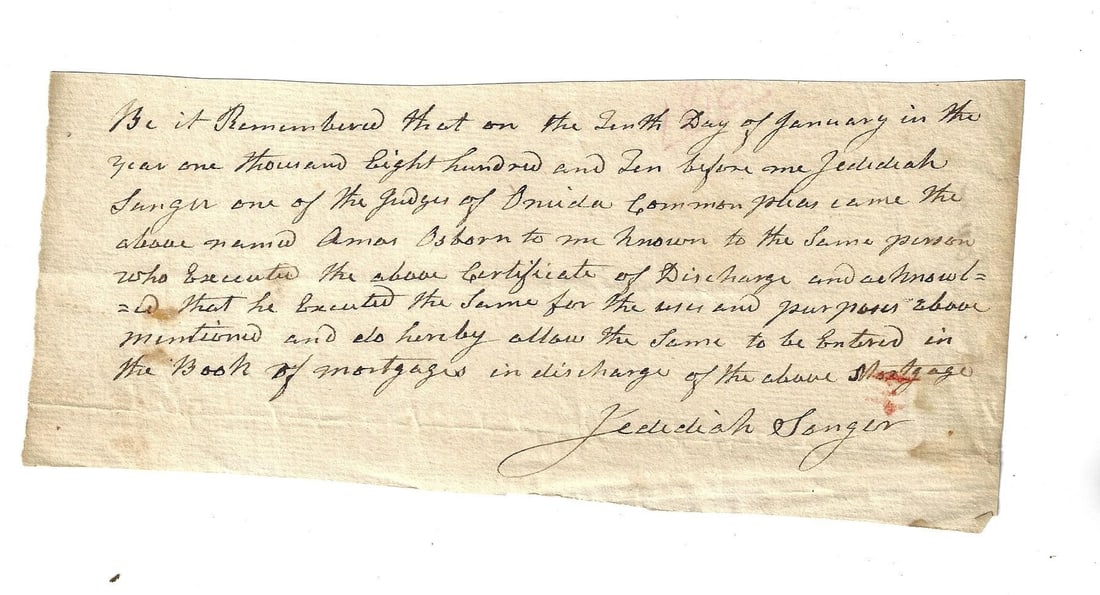 Be it Remembered that on the Tenth Day of January in the
year one thousand Eight hundred and Ten before me Jedediah
Sanger one of the Judges of Oneida Common pleas came the
above named Amos Osborn to me known to the Same person
who Executed the above Certificate of Discharge and acknowl=
=ed that he Executed the Same for the uses and purposes above
mentioned and do hereby allow the Same to be Entered in
the Book of mortgages in discharge of the above Mortgage
Jedediah Sanger